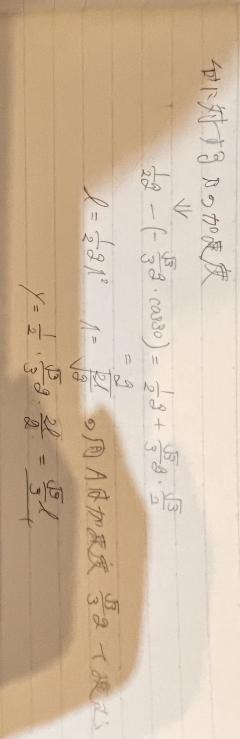 Aに対するBの加速度
⇓
1/2 g − (−√3/3 g · cos30) = 1/2 g + √3/3 g · √3/2
= g
l = 1/2 g t² t = √(2l/g) の間Aは加速度 √3/3 g
Y = 1/2 · √3/3 g · 2l/g = √3/3 l